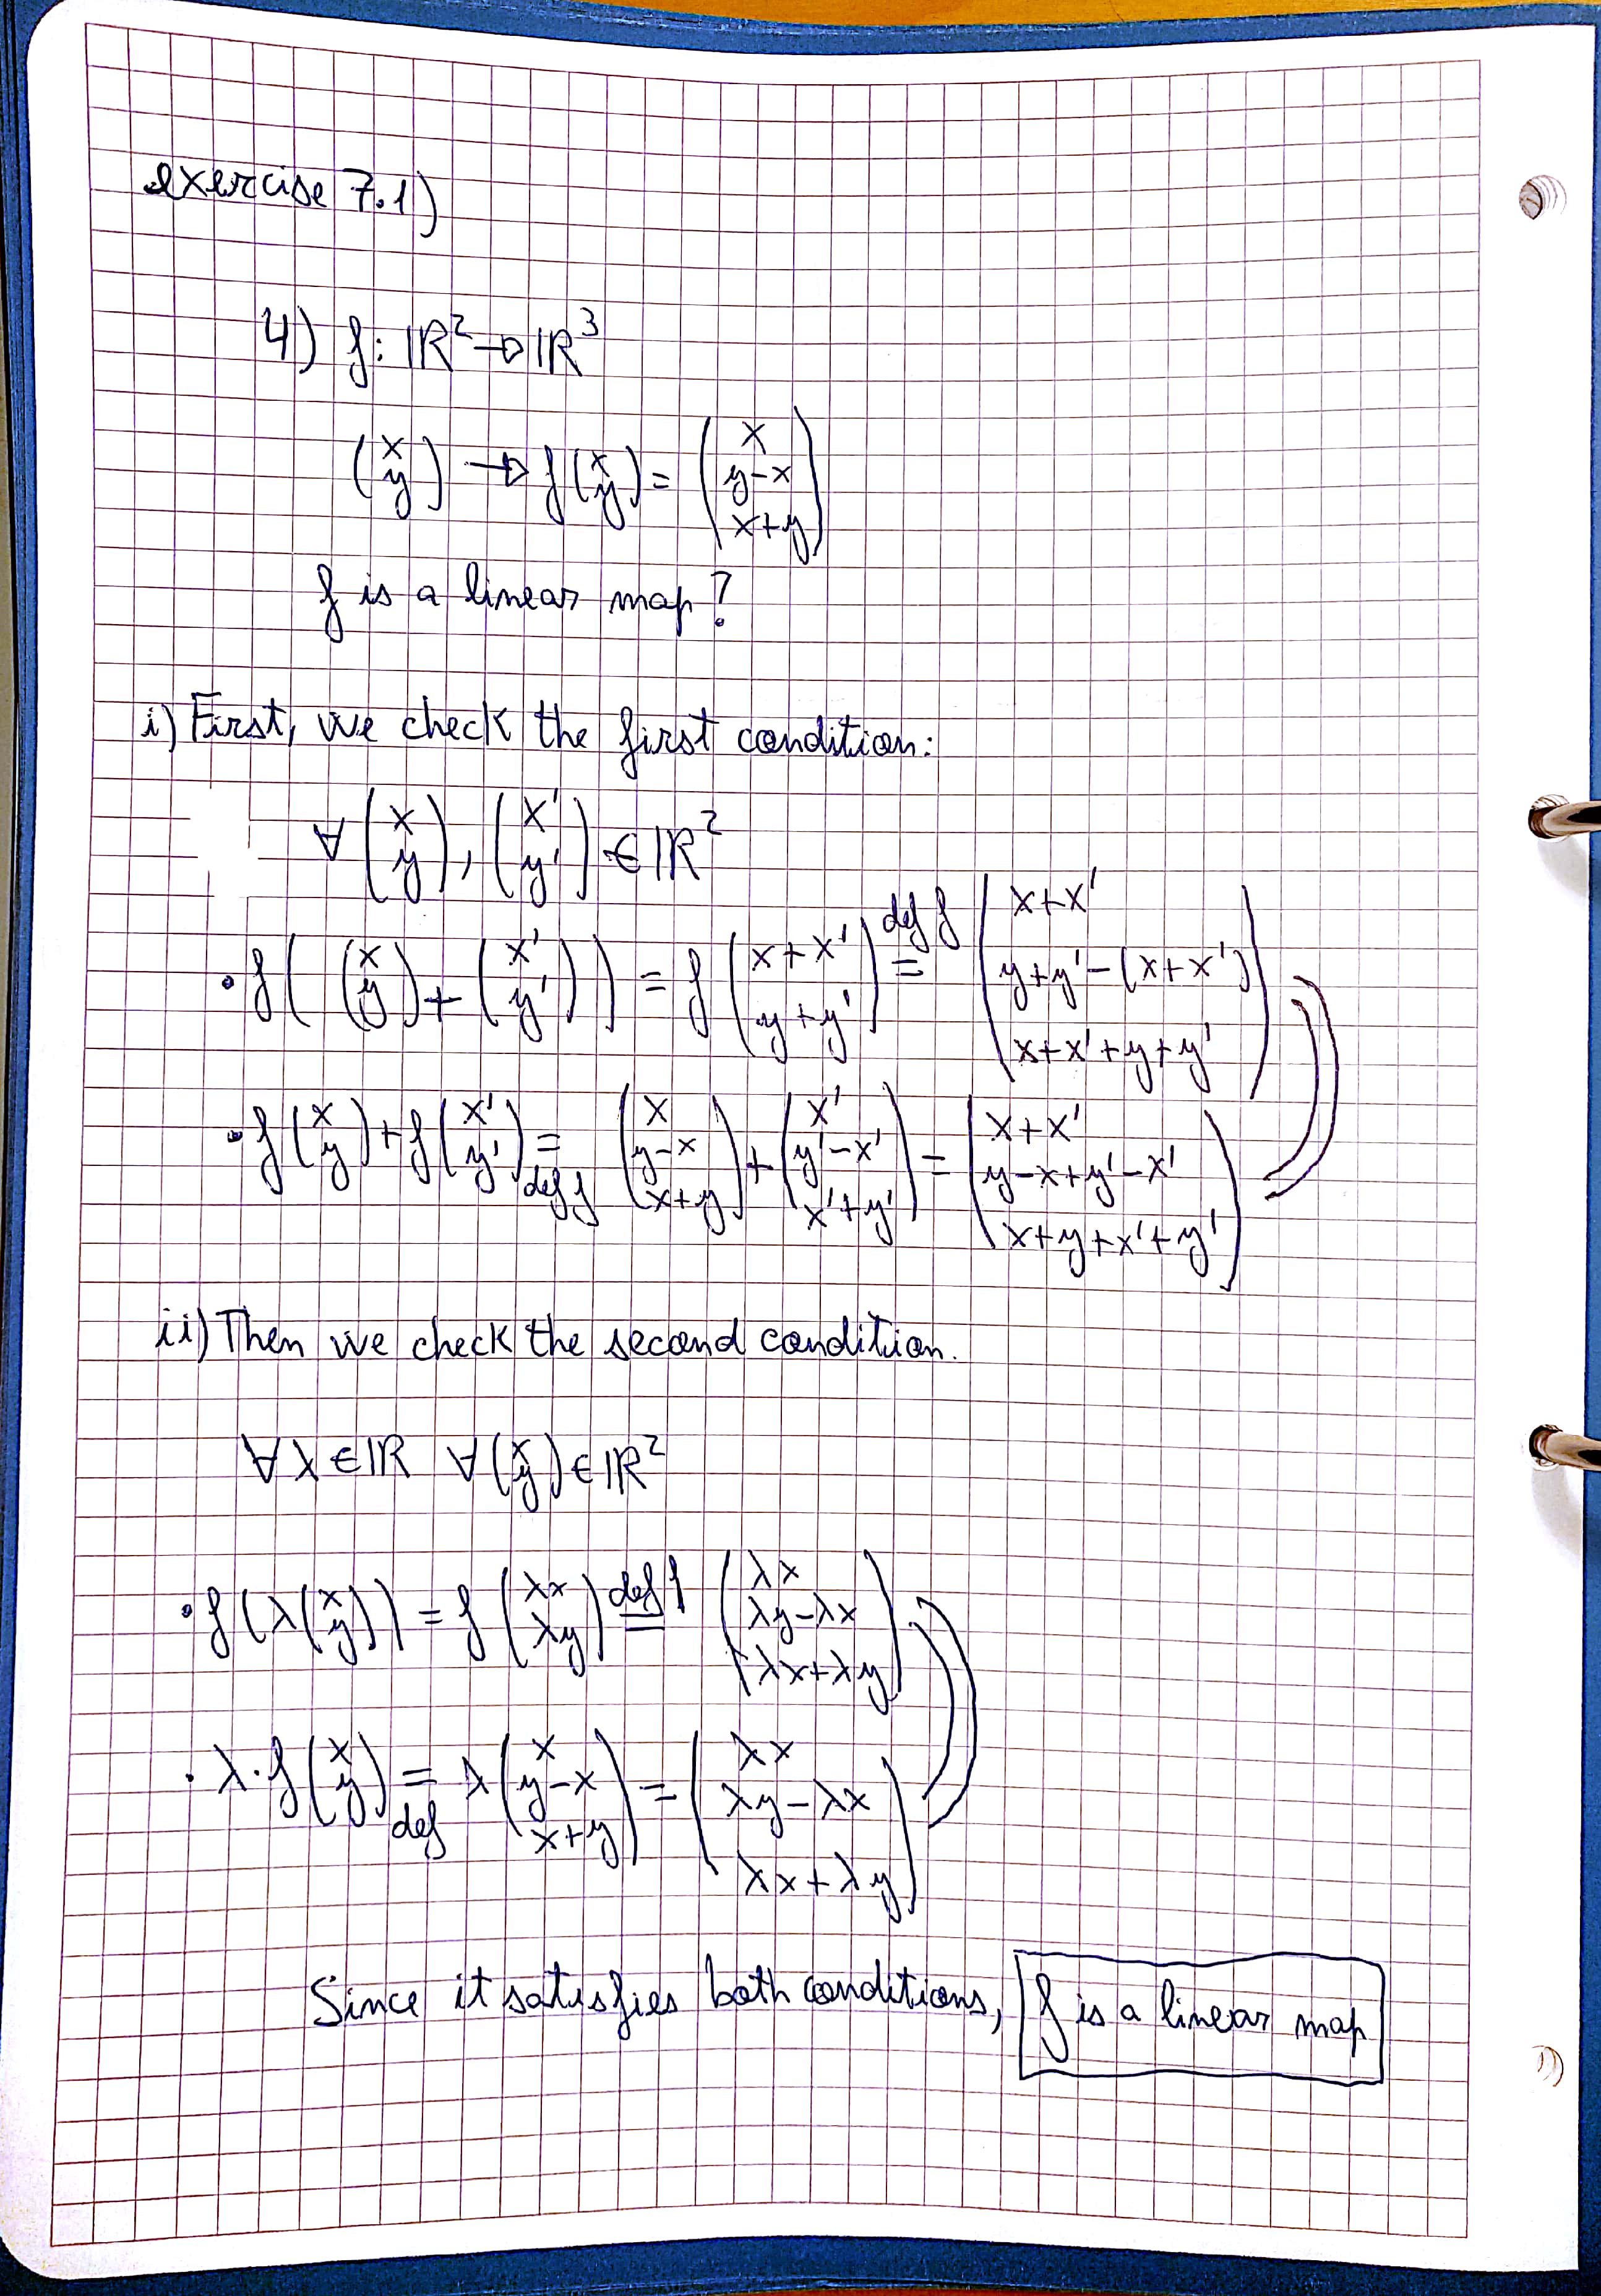 exercise 7.1)
4) f: ℝ² → ℝ³
(x y) → f(x y) = (x y-x x+y)
f is a linear map?
i) First, we check the first condition:
∀ (x y), (x' y') ∈ ℝ²
• f((x y) + (x' y')) = f(x+x' y+y') =^{def f} (x+x' y+y'-(x+x') x+x'+y+y')
• f(x y) + f(x' y') =_{def f} (x y-x x+y) + (x' y'-x' x'+y') = (x+x' y-x+y'-x' x+y+x'+y')
ii) Then we check the second condition.
∀ λ ∈ ℝ ∀ (x y) ∈ ℝ²
• f(λ(x y)) = f(λx λy) =^{def f} (λx λy-λx λx+λy)
• λ·f(x y) =_{def} λ(x y-x x+y) = (λx λy-λx λx+λy)
Since it satisfies both conditions, f is a linear map